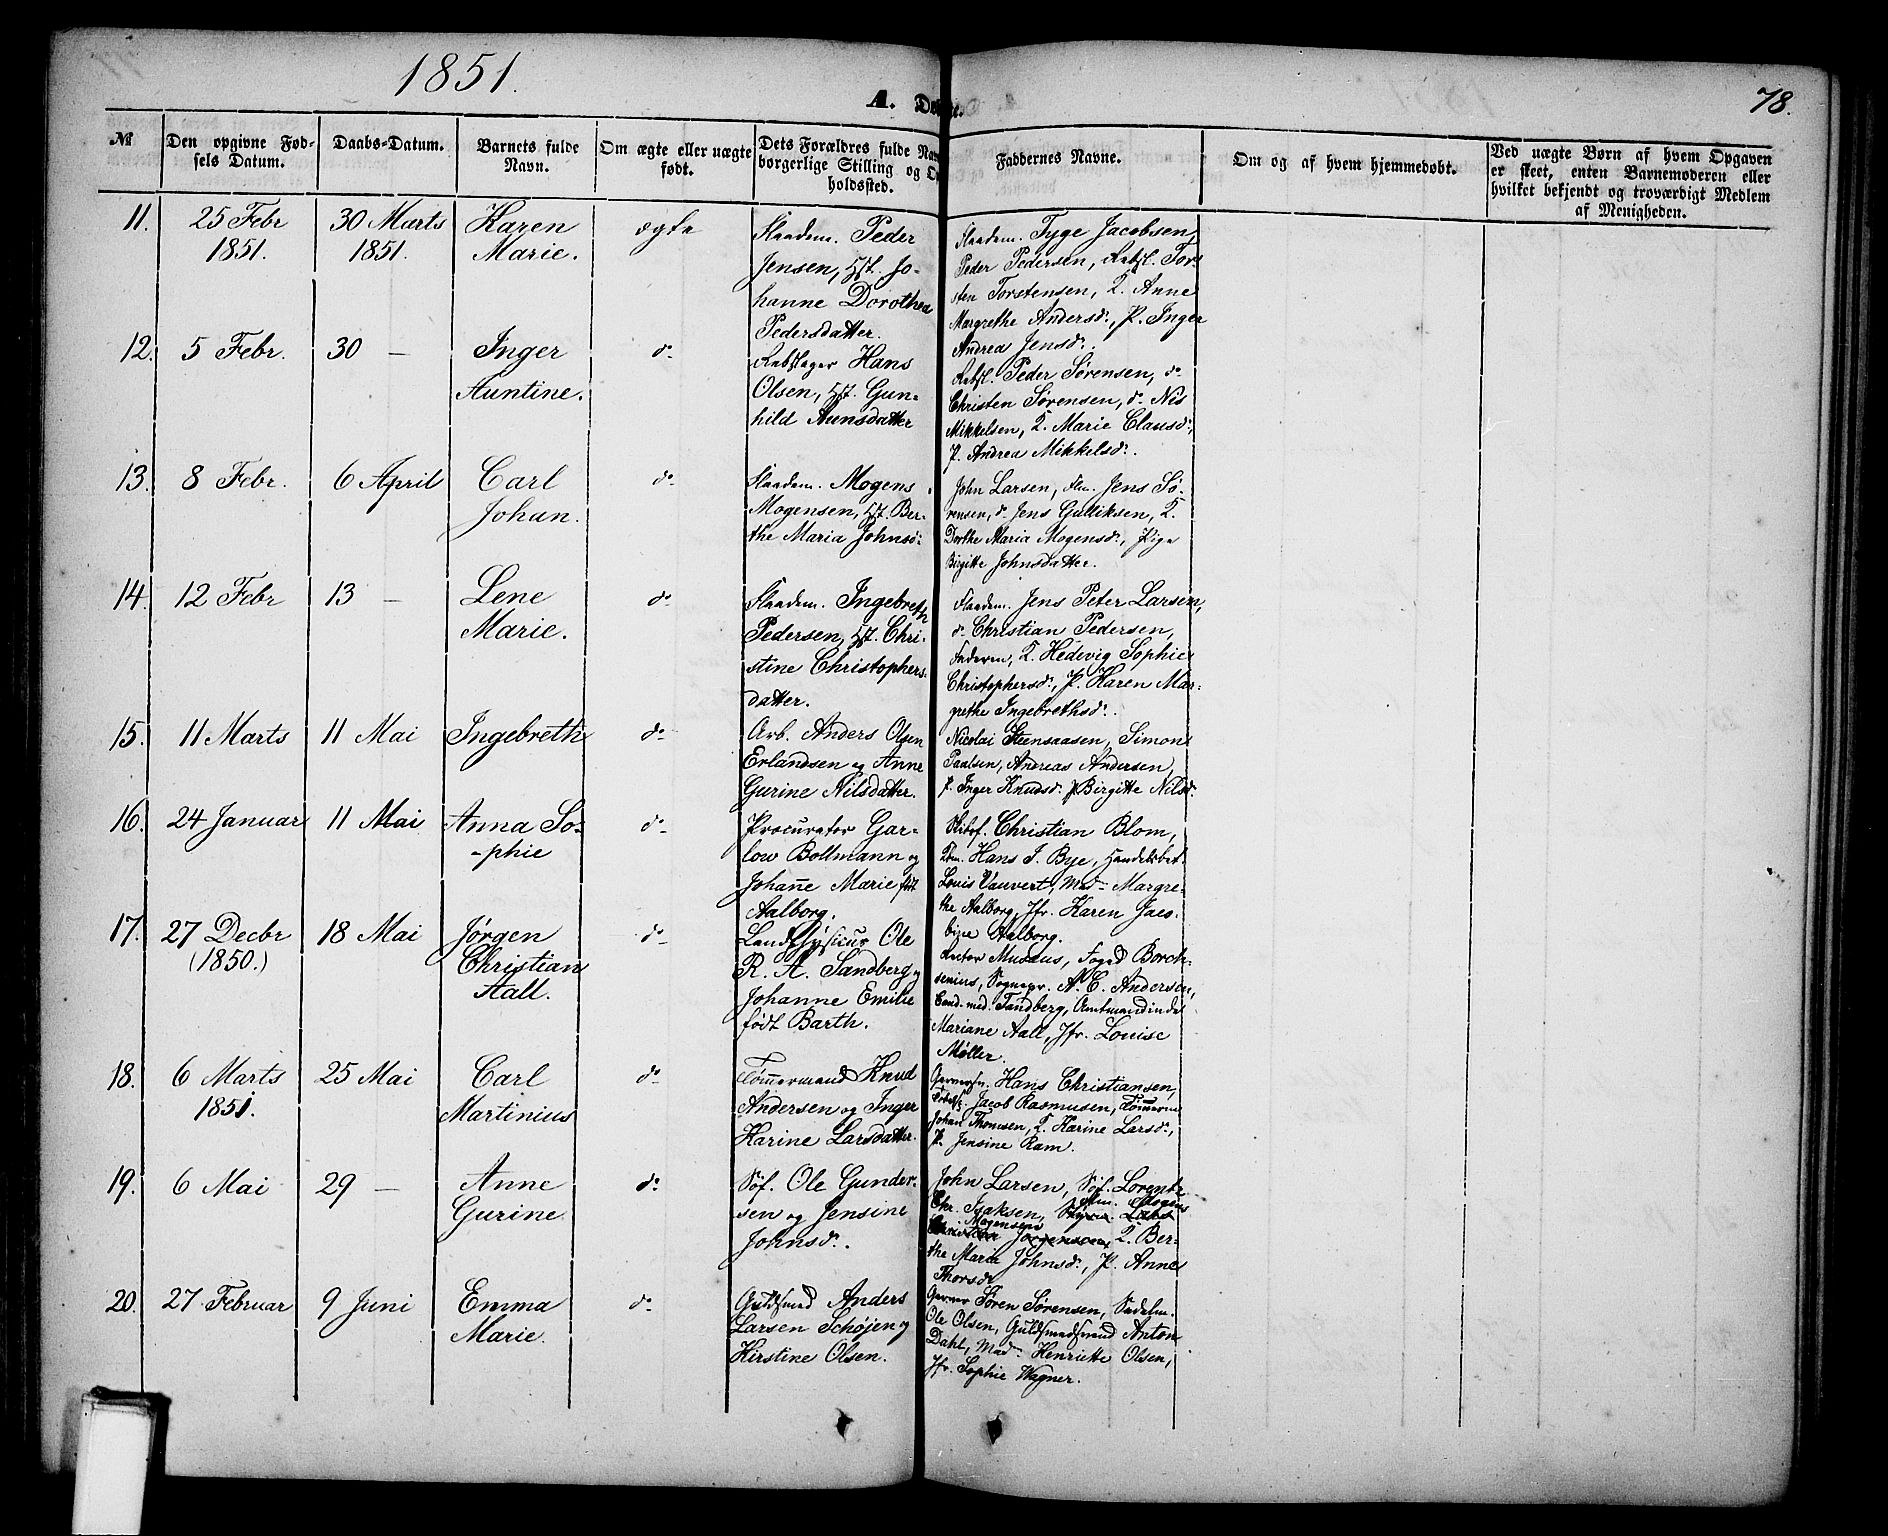 1851.
A. Døbte.
78.
№
Den opgivne Fød-
sels Datum.
Daabs-Datum.
Barnets fulde
Navn.
Om ægte eller uægte
født.
Dets Forældres fulde Nav
borgerlige Stilling og O
holdssted.
Faddernes Navne.
Om og af hvem hjemmedøbt.
Ved uægte Børn af hvem Opgaven
er skeet, enten Barnemoderen eller
hvilket bekjendt og troværdigt Medlem
af Menigheden.
11.
25 Febr
1851.
30 Marts
1851.
Karen
Marie.
ægte
Flaadem. Peder
Jensen, Hst. Jo-
hanne Dorothea
Pedersdatter.
Flaadem. Tyge Jacobsen,
Peder Pedersen, Rebsl. Tor-
sten Torstensen, K. Anne
Margrethe Andersd., P. Inger
Andrea Jensd.
12.
5 Febr.
30 —
Inger
Auntine.
do
Rebslager Hans
Olsen, Hst. Gun-
hild Aunsdatter
Rebsl. Peder Sørensen, do
Christen Sørensen, do Nils
Mikkelsen, K. Marie Clausd.,
P. Andrea Mikkelsd.
13.
8 Febr.
6 April
Carl
Johan.
do
Flaadem. Mogens
Mogensen, Hst. Ber-
the Maria Johnsd.
John Larsen, Flm. Jens Sø-
rensen, do Jens Gulliksen, K.
Dorthe Maria Mogensd., Pige
Birgitte Johnsdatter.
14.
12 Febr
13 —
Lene
Marie.
do
Flaadem. Ingebreth
Pedersen, Hst. Chri-
stine Christophers-
datter.
Flaadem. Jens Peter Larsen,
do Christian Pedersen,
Faderen, K. Hedevig Sophie
Christophersd., P. Karen Mar-
grethe Ingebrethsd.
15.
11 Marts
11 Mai
Ingebreth
do
Arb. Anders Olsen
Erlandsen og Anne
Gurine Nilsdatter.
Nicolai Steensaasen, Simon
Paalsen, Andreas Andersen,
P. Inger Knudsd. P. Birgitte Nilsd.
16.
24 Januar
11 Mai
Anna So-
-phie
do
Procurator Gar-
low Bollmann og
Johanne Marie født
Aalborg.
Skibsf. Christian Blom,
Tm. Hans J. Bye, Handelsbet.
Louis Vauvert, Mad. Margre-
the Aalborg, Jfr. Karen Jaco-
bine Aalborg.
17.
27 Decbr
(1850.)
18 Mai
Jørgen
Christian
Aall.
do
Landphysicus Ole
R. A. Sandberg og
Johanne Emilie
født Barth.
Rector Musæus, Foged Borch-
senius, Sognepr. N. C. Andersen,
Cand. med. Tandberg, Amtmandinde
Mariane Aall, Jfr. Louise
Møller.
18.
6 Marts
1851.
25 Mai
Carl
Martinius
do
Tømmermand Knud
Andersen og Inger
Karine Larsdatter.
Garversv. Hans Christiansen,
Jacob Rasmusen, Tømmerm.
Johan Thomsen, K. Karine Larsd.,
P. Jensine Ram.
19.
6 Mai
29 —
Anne
Gurine
do
Søf. Ole Gunder-
sen og Jensine
Johnsd.
John Larsen, Søf. Lorentz
Chr. Isaksen, Flm. Mogens
Mogensen
Jørgensen, K. Ber-
the Maria Johnsd., P. Anne
Thorsd.
20.
27 Februar
9 Juni
Emma
Marie.
do
Guldsmed Anders
Larsen Schøjen og
Kirstine Olsen.
Garver Søren Sørensen, Sadelm.
Ole Olsen, Guldsmedsvend Anton
Dahl, Mad. Henriette Olsen,
Jfr. Sophie Wagner.